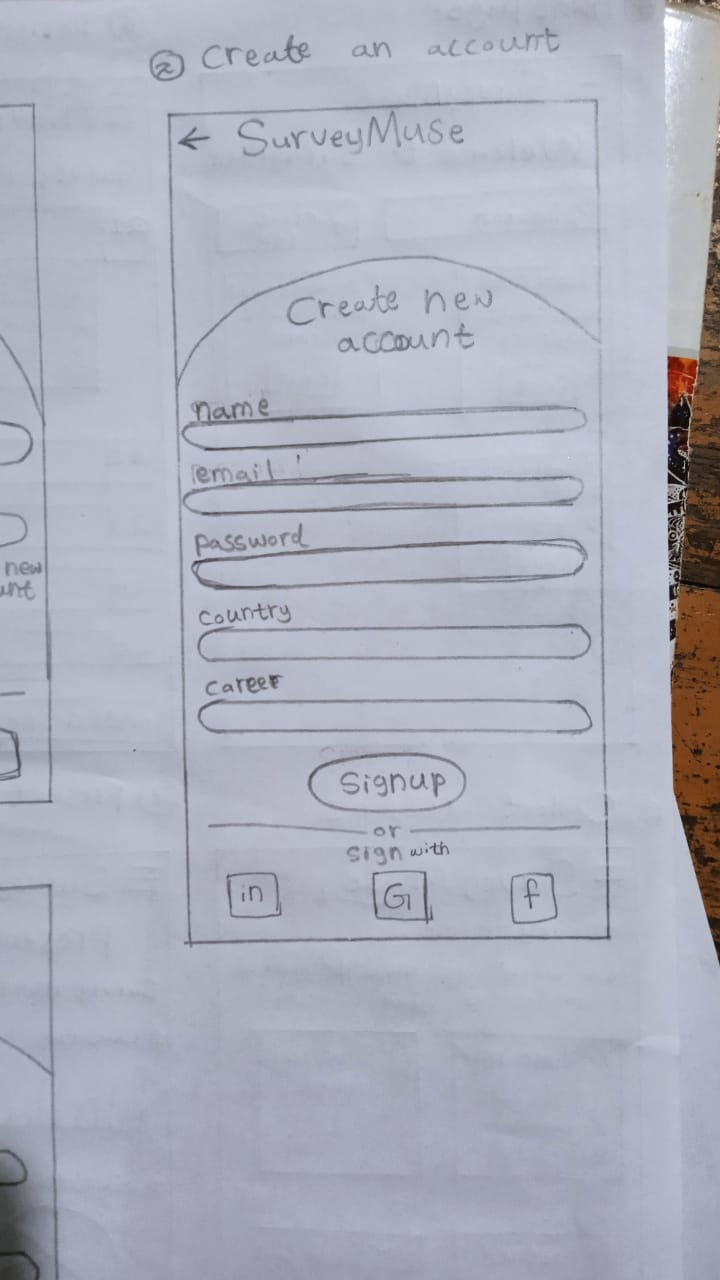 ② Create an account
← SurveyMuse
Create new
account
name
email
password
country
career
Signup
or
sign with
in G f
new
unt